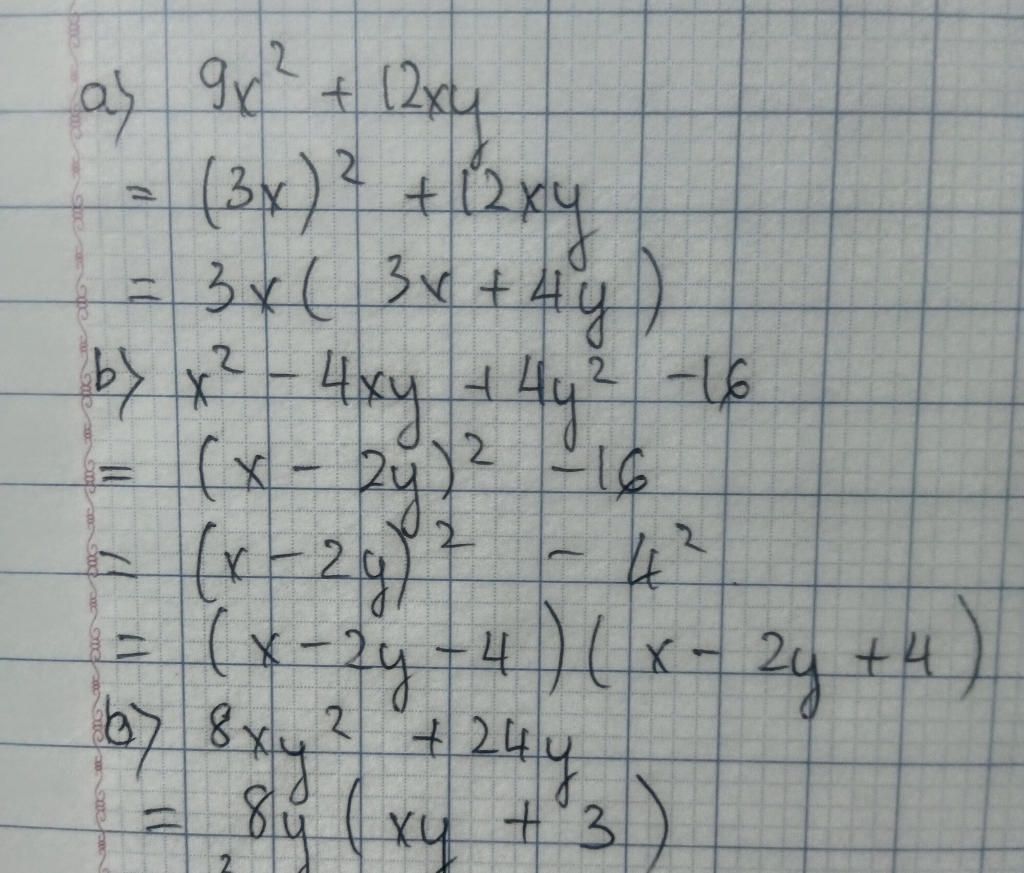 a) 9x² + 12xy
= (3x)² + 12xy
= 3x( 3x + 4y )
b) x² - 4xy + 4y² - 16
= (x - 2y)² - 16
= (x - 2y)² - 4²
= (x - 2y - 4)( x - 2y + 4 )
b) 8xy² + 24y
= 8y ( xy + 3 )